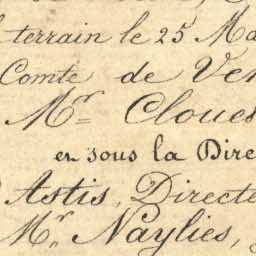 terrain le 25 Ma
Comte de Ver
Mr Cloues
en sous la Dire
Astis, Directe
Mr Naylies,